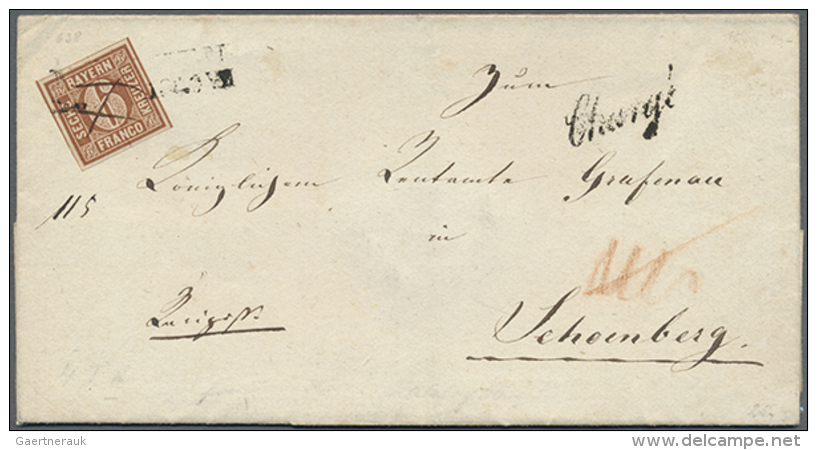 638
BAYERN
SECHS
KREUZER
FRANCO
6
Chargé
Zum
Königlichem Rentamte Grafenau
115
in
Schoenberg.
Gaertnerauk
www.delcampe.net